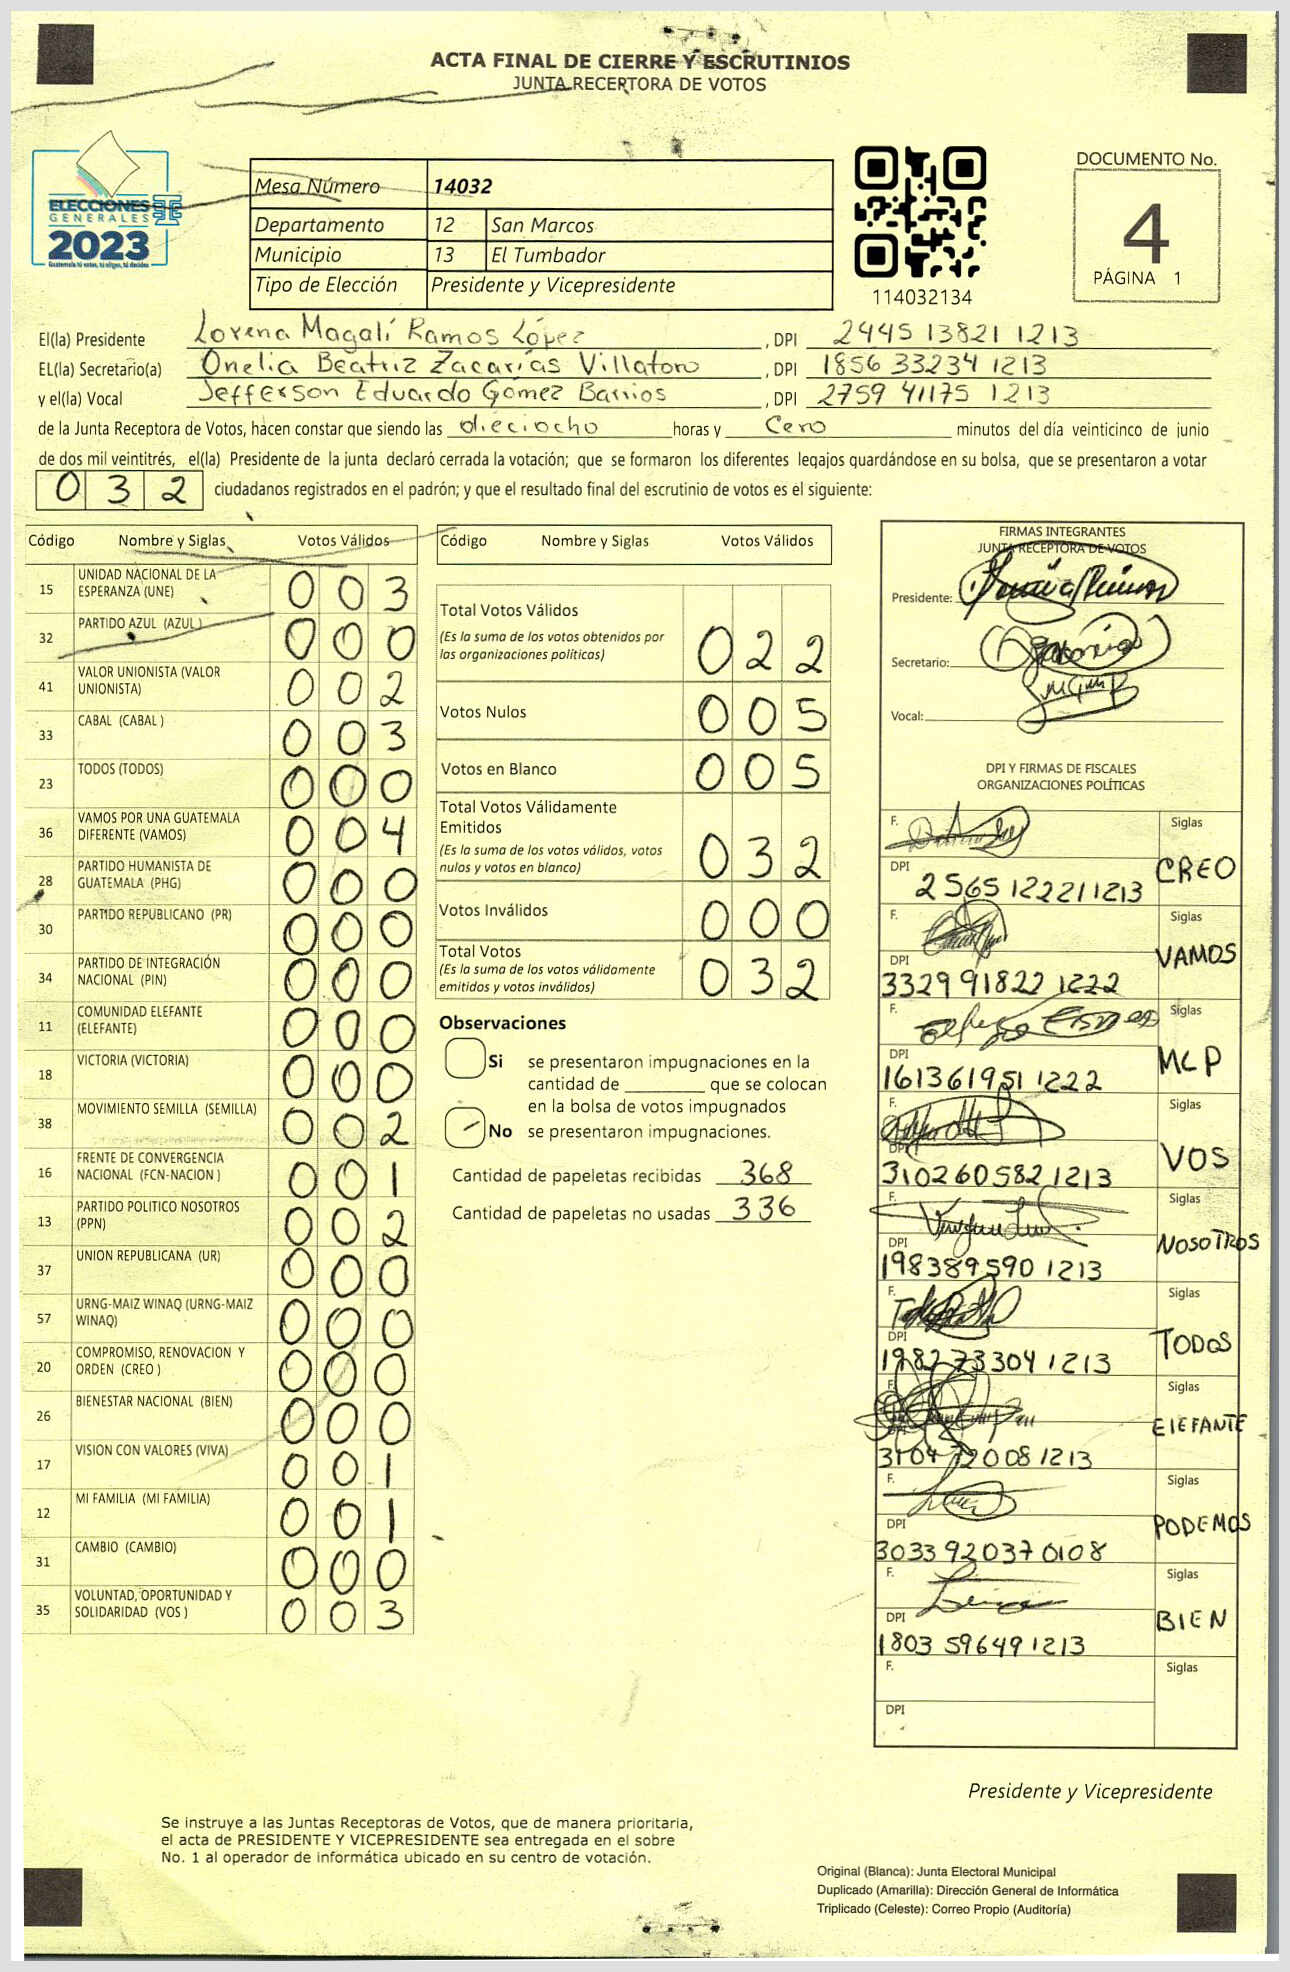 ACTA FINAL DE CIERRE Y ESCRUTINIOS
JUNTA RECEPTORA DE VOTOS
ELECCIONES
GENERALES
2023
Guatemala tú votas, tú eliges, tú decides
Mesa Número 14032
Departamento 12 San Marcos
Municipio 13 El Tumbador
Tipo de Elección Presidente y Vicepresidente
114032134
DOCUMENTO No.
4
PÁGINA 1
El(la) Presidente Lorena Magalí Ramos López, DPI 2445 13821 1213
EL(la) Secretario(a) Onelia Beatriz Zacarías Villatoro, DPI 1856 33234 1213
y el(la) Vocal Jefferson Eduardo Gómez Barrios, DPI 2759 41175 1213
de la Junta Receptora de Votos, hacen constar que siendo las dieciocho horas y Cero minutos del día veinticinco de junio
de dos mil veintitrés, el(la) Presidente de la junta declaró cerrada la votación; que se formaron los diferentes legajos guardándose en su bolsa, que se presentaron a votar
032 ciudadanos registrados en el padrón; y que el resultado final del escrutinio de votos es el siguiente:
Código Nombre y Siglas Votos Válidos
15 UNIDAD NACIONAL DE LA ESPERANZA (UNE) 003
32 PARTIDO AZUL (AZUL) 000
41 VALOR UNIONISTA (VALOR UNIONISTA) 002
33 CABAL (CABAL ) 003
23 TODOS (TODOS) 000
36 VAMOS POR UNA GUATEMALA DIFERENTE (VAMOS) 004
28 PARTIDO HUMANISTA DE GUATEMALA (PHG) 000
30 PARTIDO REPUBLICANO (PR) 000
34 PARTIDO DE INTEGRACIÓN NACIONAL (PIN) 000
11 COMUNIDAD ELEFANTE (ELEFANTE) 000
18 VICTORIA (VICTORIA) 000
38 MOVIMIENTO SEMILLA (SEMILLA) 002
16 FRENTE DE CONVERGENCIA NACIONAL (FCN-NACION ) 001
13 PARTIDO POLITICO NOSOTROS (PPN) 002
37 UNION REPUBLICANA (UR) 000
57 URNG-MAIZ WINAQ (URNG-MAIZ WINAQ) 000
20 COMPROMISO, RENOVACION Y ORDEN (CREO ) 000
26 BIENESTAR NACIONAL (BIEN) 000
17 VISION CON VALORES (VIVA) 001
12 MI FAMILIA (MI FAMILIA) 001
31 CAMBIO (CAMBIO) 000
35 VOLUNTAD, OPORTUNIDAD Y SOLIDARIDAD (VOS ) 003
Código Nombre y Siglas Votos Válidos
Total Votos Válidos 022
(Es la suma de los votos obtenidos por
las organizaciones políticas)
Votos Nulos 005
Votos en Blanco 005
Total Votos Válidamente
Emitidos 032
(Es la suma de los votos válidos, votos
nulos y votos en blanco)
Votos Inválidos 000
Total Votos 032
(Es la suma de los votos válidamente
emitidos y votos inválidos)
Observaciones
Si se presentaron impugnaciones en la
cantidad de ________ que se colocan
en la bolsa de votos impugnados
No se presentaron impugnaciones.
Cantidad de papeletas recibidas 368
Cantidad de papeletas no usadas 336
FIRMAS INTEGRANTES
JUNTA RECEPTORA DE VOTOS
Presidente:
Secretario:
Vocal:
DPI Y FIRMAS DE FISCALES
ORGANIZACIONES POLÍTICAS
F. Siglas
DPI 2565 12221 1213 CREO
F. Siglas
DPI 3329 91822 1222 VAMOS
F. Siglas
DPI 1613 61951 1222 MLP
F. Siglas
DPI 3102 60582 1213 VOS
F. Siglas
DPI 1983 89590 1213 NOSOTROS
F. Siglas
DPI 1982 73304 1213 TODOS
F. Siglas
3104 72008 1213 ElEFANTE
F. Siglas
DPI 3033 92037 0108 PODEMOS
F. Siglas
DPI 1803 59649 1213 BIEN
F. Siglas
DPI
Presidente y Vicepresidente
Se instruye a las Juntas Receptoras de Votos, que de manera prioritaria,
el acta de PRESIDENTE Y VICEPRESIDENTE sea entregada en el sobre
No. 1 al operador de informática ubicado en su centro de votación.
Original (Blanca): Junta Electoral Municipal
Duplicado (Amarilla): Dirección General de Informática
Triplicado (Celeste): Correo Propio (Auditoría)